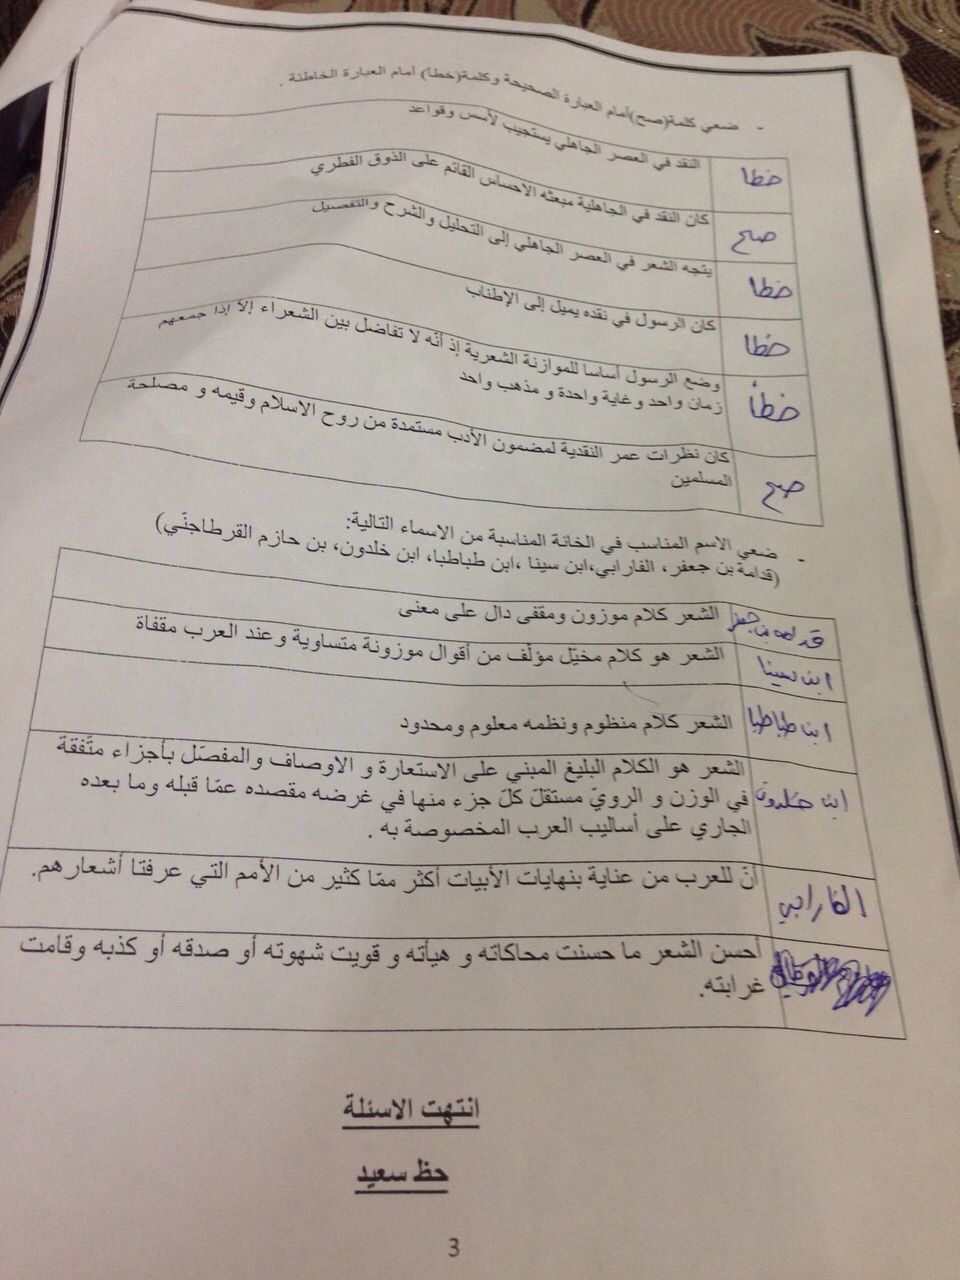 - ضعي كلمة(صح)أمام العبارة الصحيحة وكلمة(خطأ) أمام العبارة الخاطئة .
خطا النقد في العصر الجاهلي يستجيب لأسس وقواعد
صح كان النقد في الجاهلية مبعثه الاحساس القائم على الذوق الفطري
خطا يتجه الشعر في العصر الجاهلي إلى التحليل والشرح والتفصيل
خطا كان الرسول في نقده يميل إلى الإطناب
خطأ وضع الرسول أساسا للموازنة الشعرية إذ أنّه لا تفاضل بين الشعراء إلا إذا جمعهم
زمان واحد وغاية واحدة و مذهب واحد
صح كان نظرات عمر النقدية لمضمون الأدب مستمدة من روح الاسلام وقيمه و مصلحة
المسلمين
- ضعي الاسم المناسب في الخانة المناسبة من الاسماء التالية:
(قدامة بن جعفر، الفارابي،ابن سينا ،ابن طباطبا، ابن خلدون، بن حازم القرطاجنّي)
قدامه بن جعفر الشعر كلام موزون ومقفى دال على معنى
ابن سينا الشعر هو كلام مخيّل مؤلّف من أقوال موزونة متساوية وعند العرب مقفاة
ابن طباطبا الشعر كلام منظوم ونظمه معلوم ومحدود
ابن خلدون الشعر هو الكلام البليغ المبني على الاستعارة و الاوصاف والمفصّل بأجزاء متّفقة
في الوزن و الرويّ مستقلّ كلّ جزء منها في غرضه مقصده عمّا قبله وما بعده
الجاري على أساليب العرب المخصوصة به .
الفارابي أنّ للعرب من عناية بنهايات الأبيات أكثر ممّا كثير من الأمم التي عرفتا أشعارهم.
أحسن الشعر ما حسنت محاكاته و هيأته و قويت شهوته أو صدقه أو كذبه وقامت
غرابته.
انتهت الاسئلة
حظ سعيد
3